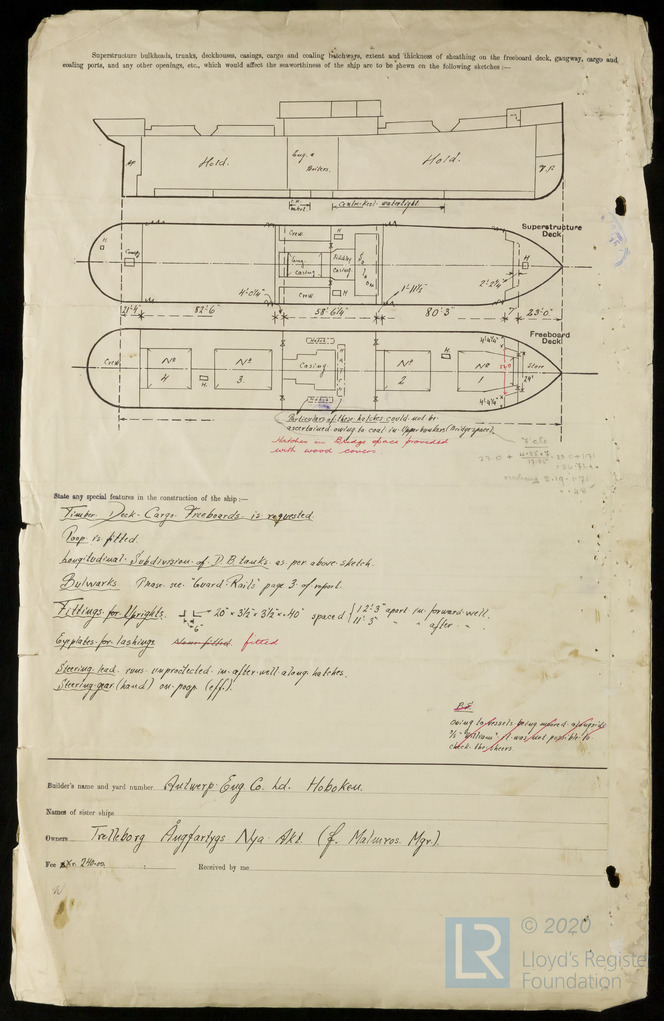 Superstructure bulkheads, trunks, deckhouses, casings, cargo and coaling hatchways, extent and thickness of sheathing on the freeboard deck, gangway, cargo and
coaling ports, and any other openings, etc., which would affect the seaworthiness of the ship are to be shewn on the following sketches :—
AP
Hold.
Eng. &
Boilers.
Hold.
Centre Keel watertight
Superstructure
Deck
H
Crew
H
Eng.
Casing
Casing
Crew
H
H
4'-0¼"
2'-2¼"
21'-4"
82'-6"
58'-6¼"
80'-3"
7'
23'-0"
Freeboard
Deck
Crew
No
4
H.
No
3
Hatch
Casing
Hatch
No
2
H
No
1
4'-9¼"
24'
4'-9¼"
Store
Particulars of these hatches could not be
ascertained owing to coal in Upper bunkers (Bridge space).
Hatches in Bridge space provided
with wood covers
State any special features in the construction of the ship :—
Timber Deck Cargo Freeboards is requested
Poop is fitted.
Longitudinal Subdivision of D.B. tanks as per above sketch.
Bulwarks Please see "Guard Rails" page 3 of report.
Fittings for Uprights. 20" × 3½" × 3½" × .40" spaced { 12'-3" apart in forward well.
11'-5" " " after "
6"
Eyeplates for lashings fitted
Steering lead runs unprotected in after well along hatches.
Steering gear (hand) on poop (eff.).
Owing to vessels being moored alongside
S/S "William" it was not possible to
check the sheers.
Builder's name and yard number Antwerp Eng Co. Ld. Hoboken.
Names of sister ships
Owners Trelleborg Ångfartygs Nya Akt. (F. Malmros. Mgr).
Fee Kr. 240.00. : Received by me
LR
© 2020
Lloyd's Register
Foundation